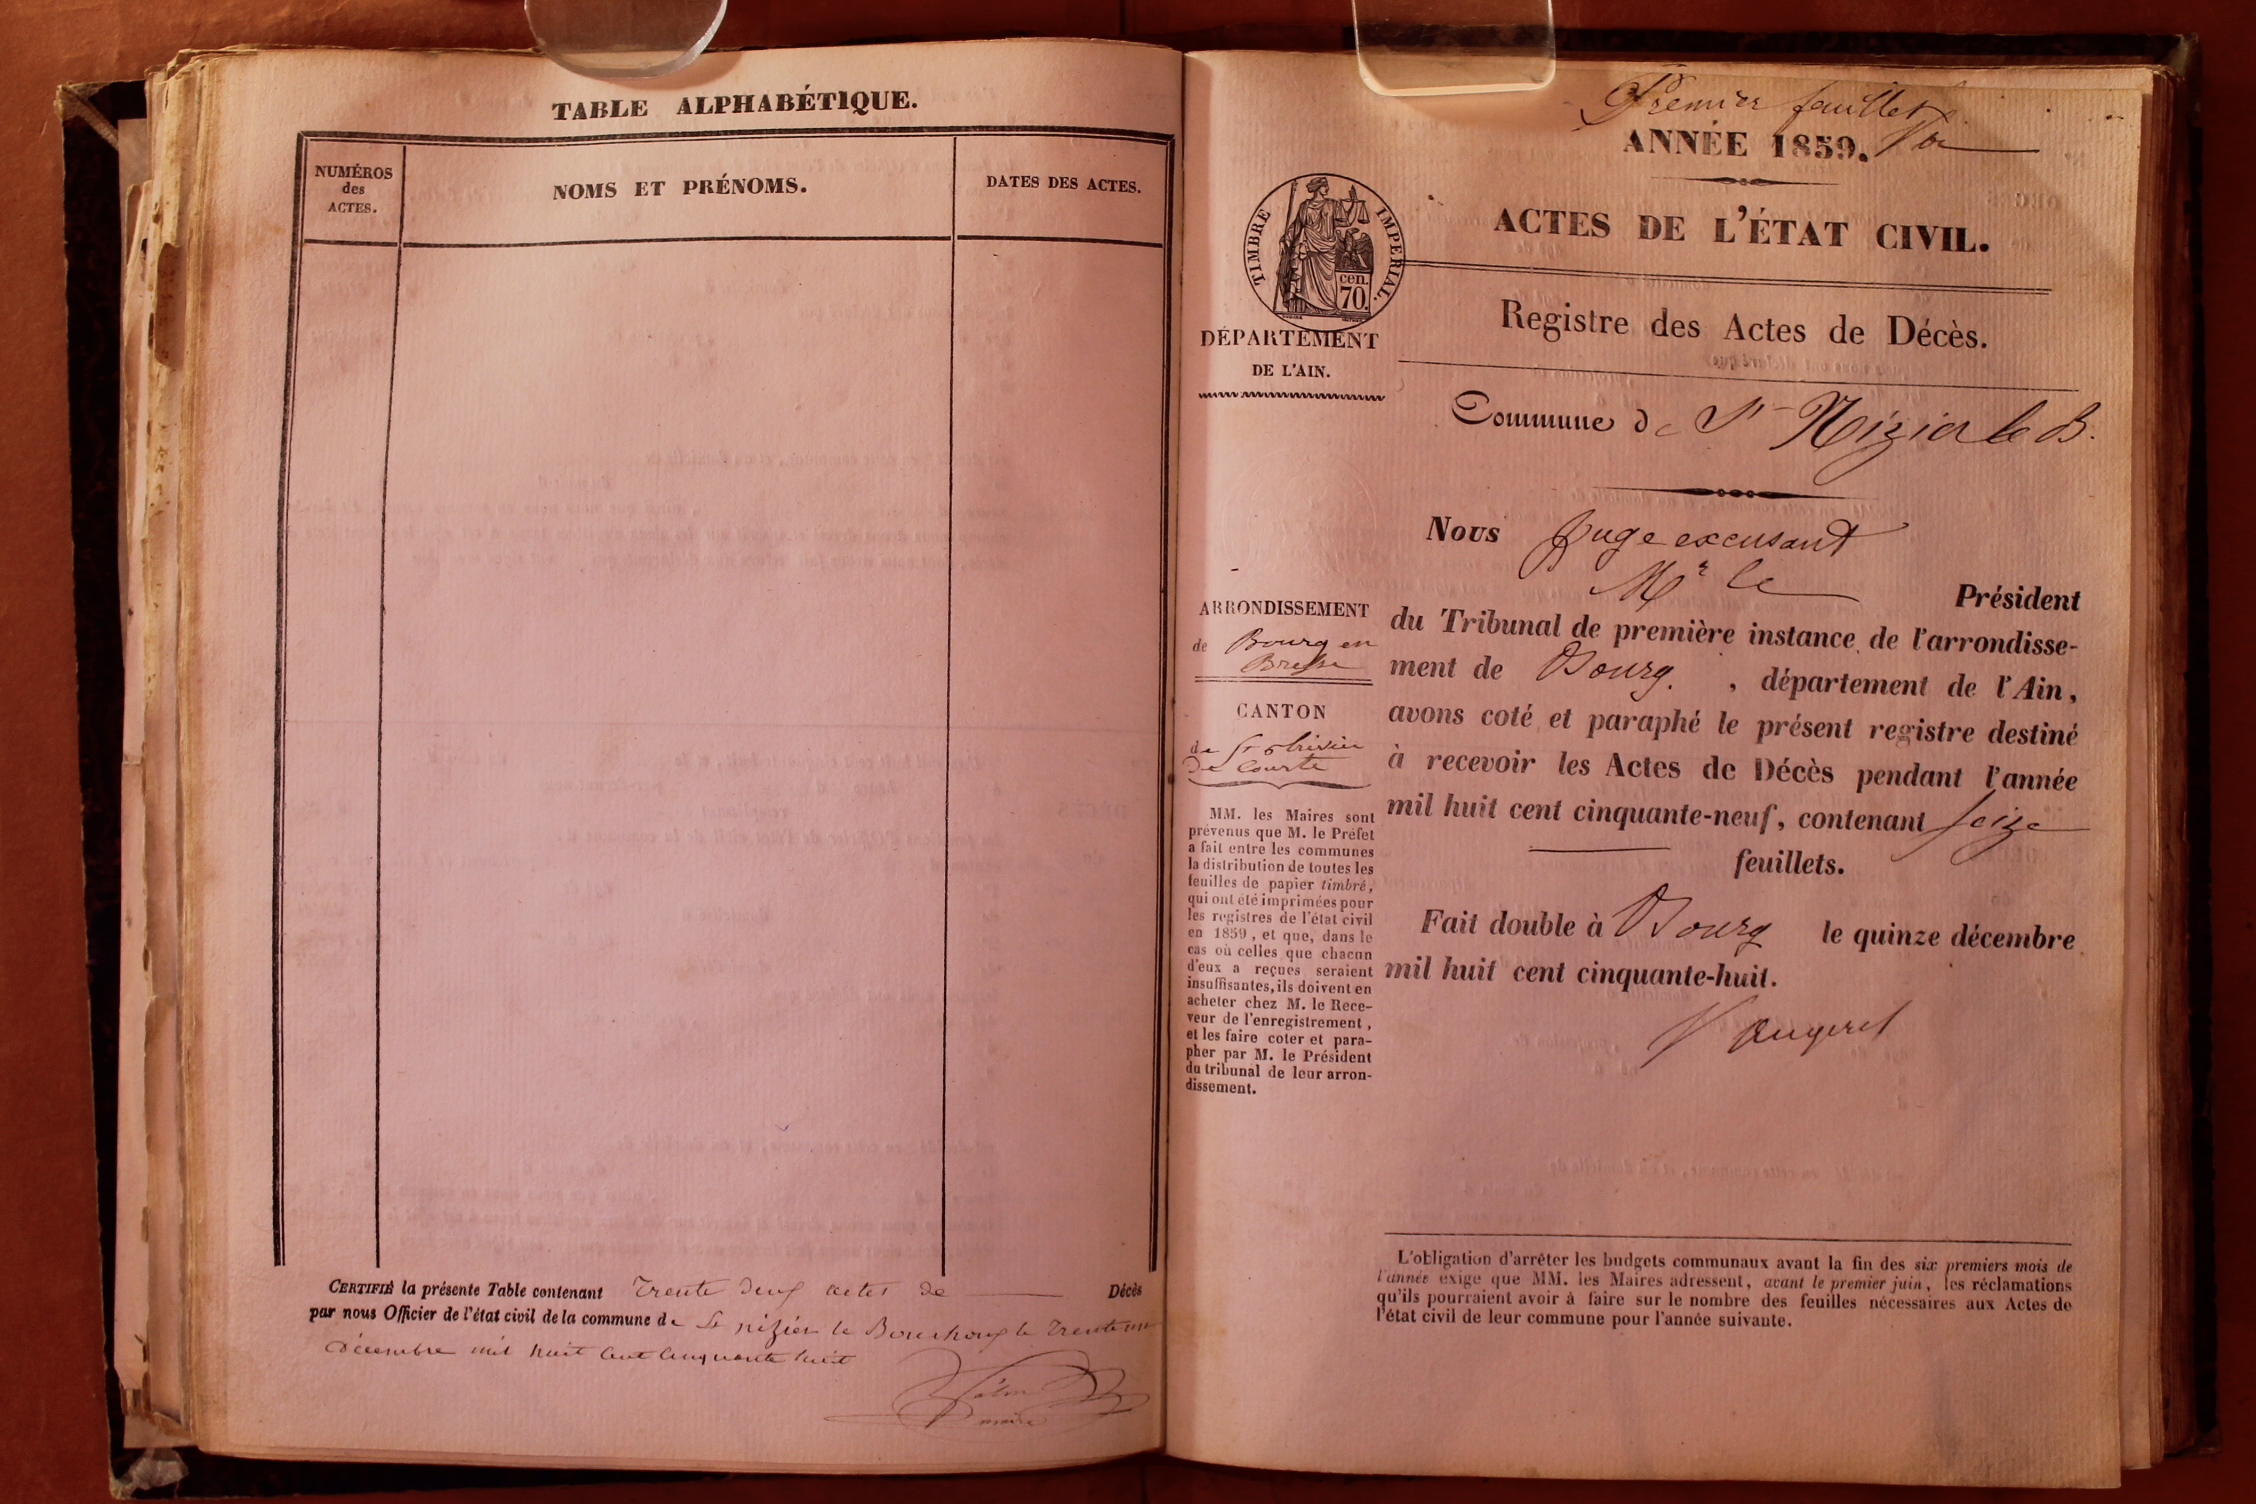 TABLE ALPHABÉTIQUE.
NUMÉROS
des
ACTES.
NOMS ET PRÉNOMS.
DATES DES ACTES.
CERTIFIÉ la présente Table contenant Trente deux actes de Décès
par nous Officier de l'état civil de la commune de St nizier le Bouchoux le Trente un
décembre mil huit cent cinquante huit
maire
Premier feuillet
ANNÉE 1859.
ACTES DE L'ÉTAT CIVIL.
TIMBRE IMPERIAL.
cen.
70.
DÉPARTEMENT
DE L'AIN.
Registre des Actes de Décès.
Commune de St Nizier le B.
Nous Juge excusant
Mr le Président
du Tribunal de première instance de l'arrondisse-
ment de Bourg. , département de l'Ain,
avons coté et paraphé le présent registre destiné
à recevoir les Actes de Décès pendant l'année
mil huit cent cinquante-neuf, contenant seize
feuillets.
Fait double à Bourg le quinze décembre
mil huit cent cinquante-huit.
ARRONDISSEMENT
de Bourg en
Bresse
CANTON
de St Trivier
de Courte
MM. les Maires sont
prévenus que M. le Préfet
a fait entre les communes
la distribution de toutes les
feuilles de papier timbré,
qui ont été imprimées pour
les registres de l'état civil
en 1859, et que, dans le
cas où celles que chacun
d'eux a reçues seraient
insuffisantes, ils doivent en
acheter chez M. le Rece-
veur de l'enregistrement,
et les faire coter et para-
pher par M. le Président
du tribunal de leur arron-
dissement.
L'obligation d'arrêter les budgets communaux avant la fin des six premiers mois de
l'année exige que MM. les Maires adressent, avant le premier juin, les réclamations
qu'ils pourraient avoir à faire sur le nombre des feuilles nécessaires aux Actes de
l'état civil de leur commune pour l'année suivante.